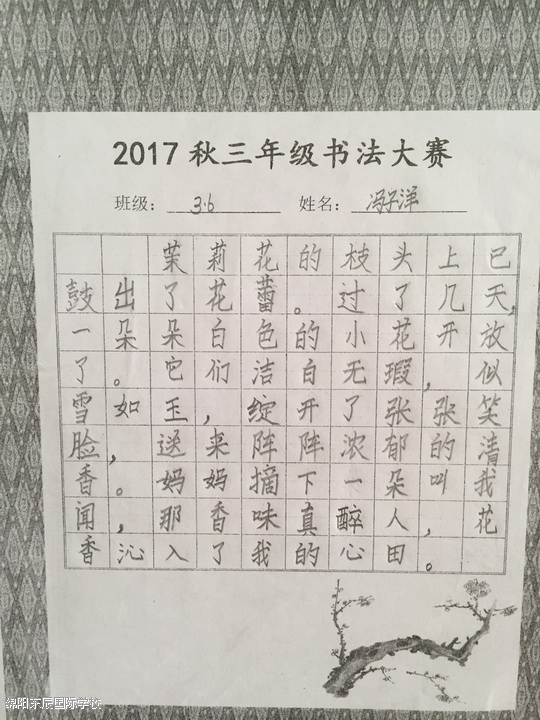 2017秋三年级书法大赛
班级：3.6 姓名：冯子洋
茉莉花的枝头上已
鼓出了花蕾。过了几天，
一朵朵白色的小花开放
了。它们洁白无瑕，似
雪如玉，绽开了张张笑
脸，送来阵阵浓郁的清
香。妈妈摘下一朵叫我
闻，那香味真醉人，花
香沁入了我的心田。
绵阳东辰国际学校